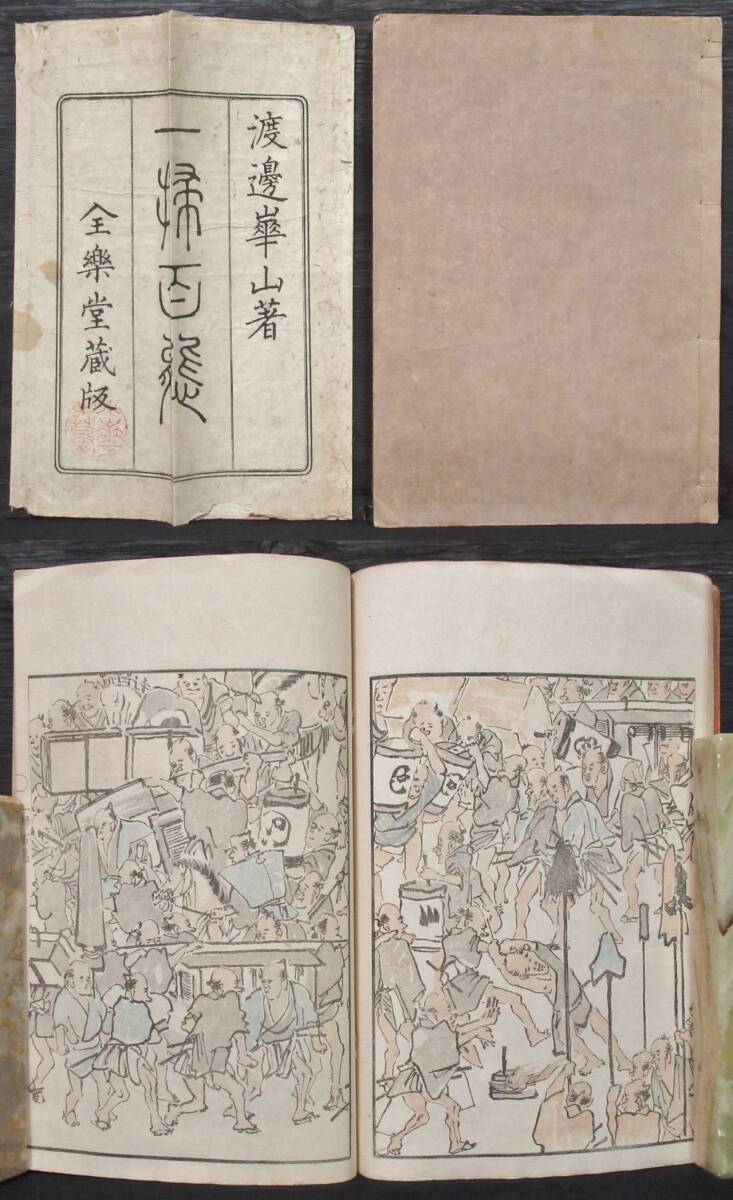 渡邊崋山著
一掃百態
全樂堂蔵版